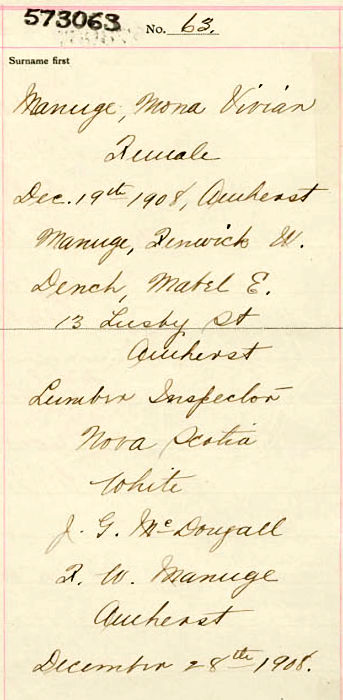 573063
No. 63.
Surname first
Manuge, Mona Vivian
Female
Dec. 19th 1908, Amherst
Manuge, Fenwick W.
Dench, Mabel E.
13 Lusby St
Amherst
Lumber Inspector
Nova Scotia
White
J. G. McDougall
F. W. Manuge
Amherst
December 28th 1908.